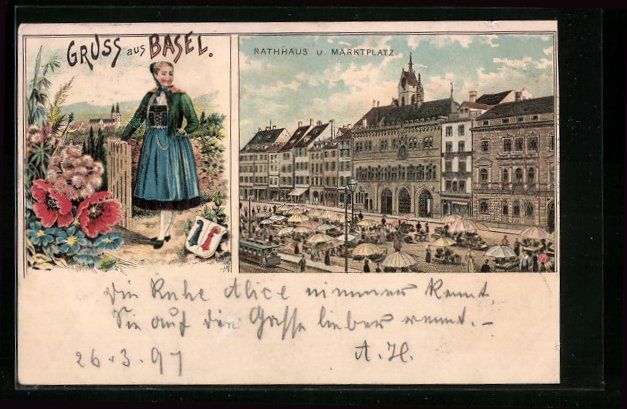 GRUSS aus BASEL.
RATHHAUS u. MARKTPLATZ.
Die Ruhe Alice nimmer kennt,
Sie auf die Gasse lieber rennt. –
26.3.97
A. H.